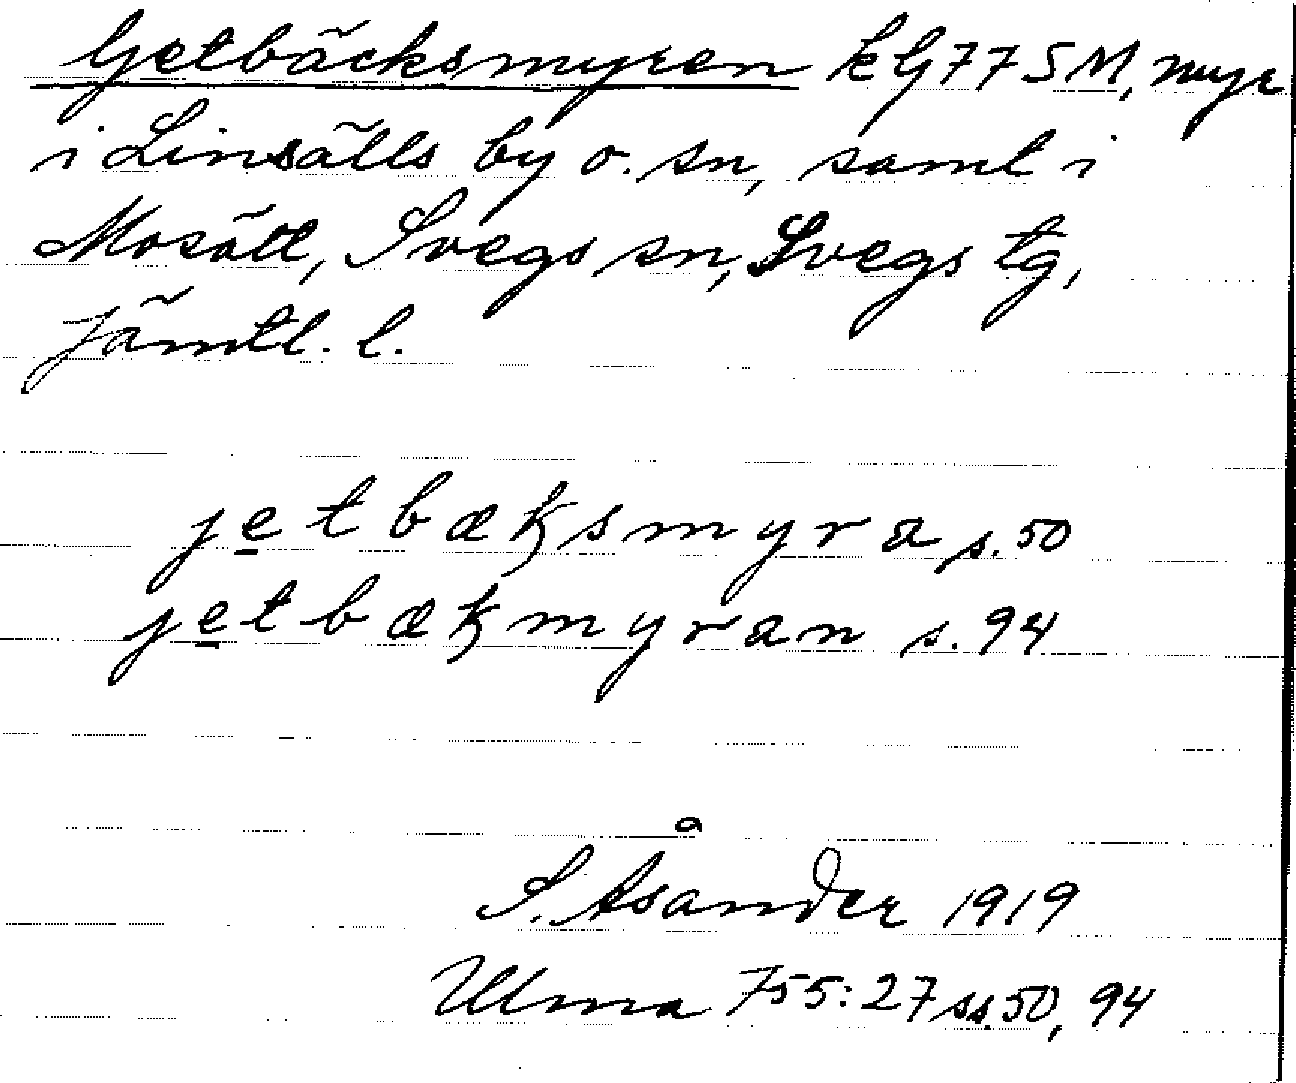 Getbäcksmyren kG77SM, myr
i Linsälls by o. sn, saml i
Mosätt, Svegs sn, Svegs tg,
Jämtl. l.
je̲tbæksmyra s. 50
je̲tbækmyran s. 94
S. Åsander 1919
Ulma 755:27 ss. 50, 94